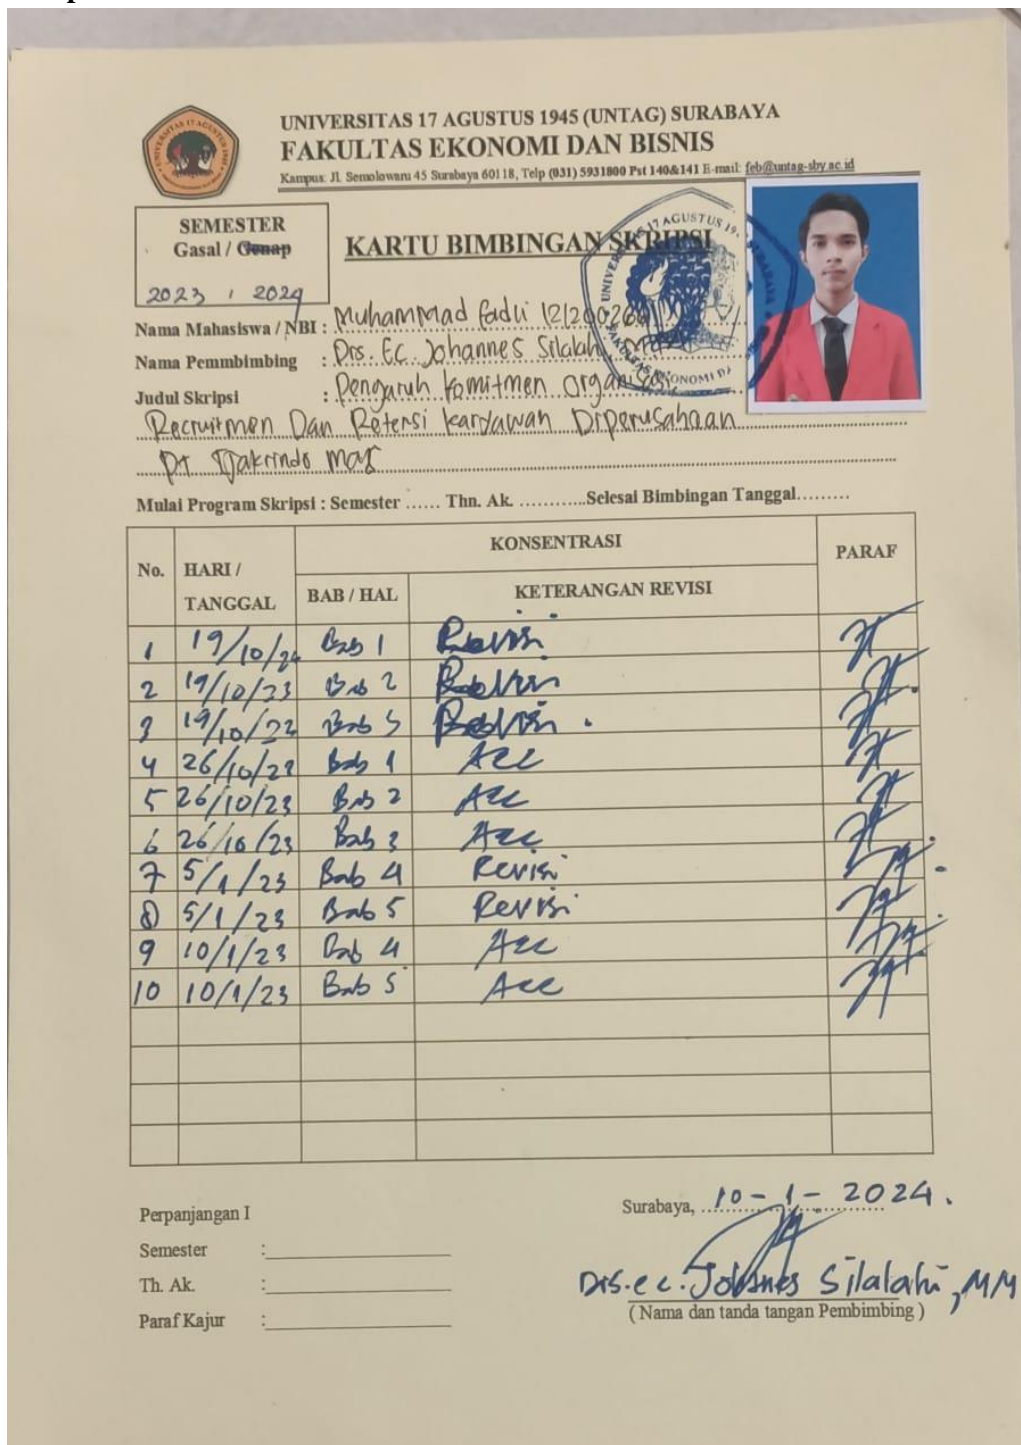 UNIVERSITAS 17 AGUSTUS 1945 (UNTAG) SURABAYA
FAKULTAS EKONOMI DAN BISNIS
Kampus: Jl. Semolowaru 45 Surabaya 60118, Telp (031) 5931800 Pst 140&141 E-mail: feb@untag-sby.ac.id
SEMESTER
Gasal / Genap
2023 / 2024
KARTU BIMBINGAN SKRIPSI
Nama Mahasiswa / NBI : Muhammad fadli
Nama Pemmbimbing : Drs. Ec. Johannes Silalahi
Judul Skripsi : Pengaruh komitmen organisasi
Recruitmen Dan Retensi karyawan Diperusahaan
PT
Mulai Program Skripsi : Semester ...... Thn. Ak. ............Selesai Bimbingan Tanggal.........
No. HARI / TANGGAL KONSENTRASI PARAF
BAB / HAL KETERANGAN REVISI
1 19/10/24 Bab 1 Revisi
2 19/10/23 Bab 2 Revisi
3 19/10/23 Bab 3 Revisi
4 26/10/23 Bab 1 Acc
5 26/10/23 Bab 2 Acc
6 26/10/23 Bab 3 Acc
7 5/1/23 Bab 4 Revisi
8 5/1/23 Bab 5 Revisi
9 10/1/23 Bab 4 Acc
10 10/1/23 Bab 5 Acc
Perpanjangan I
Semester :
Th. Ak. :
Paraf Kajur :
Surabaya, 10-1-2024.
Drs.ec. Johanes Silalahi, MM
( Nama dan tanda tangan Pembimbing )